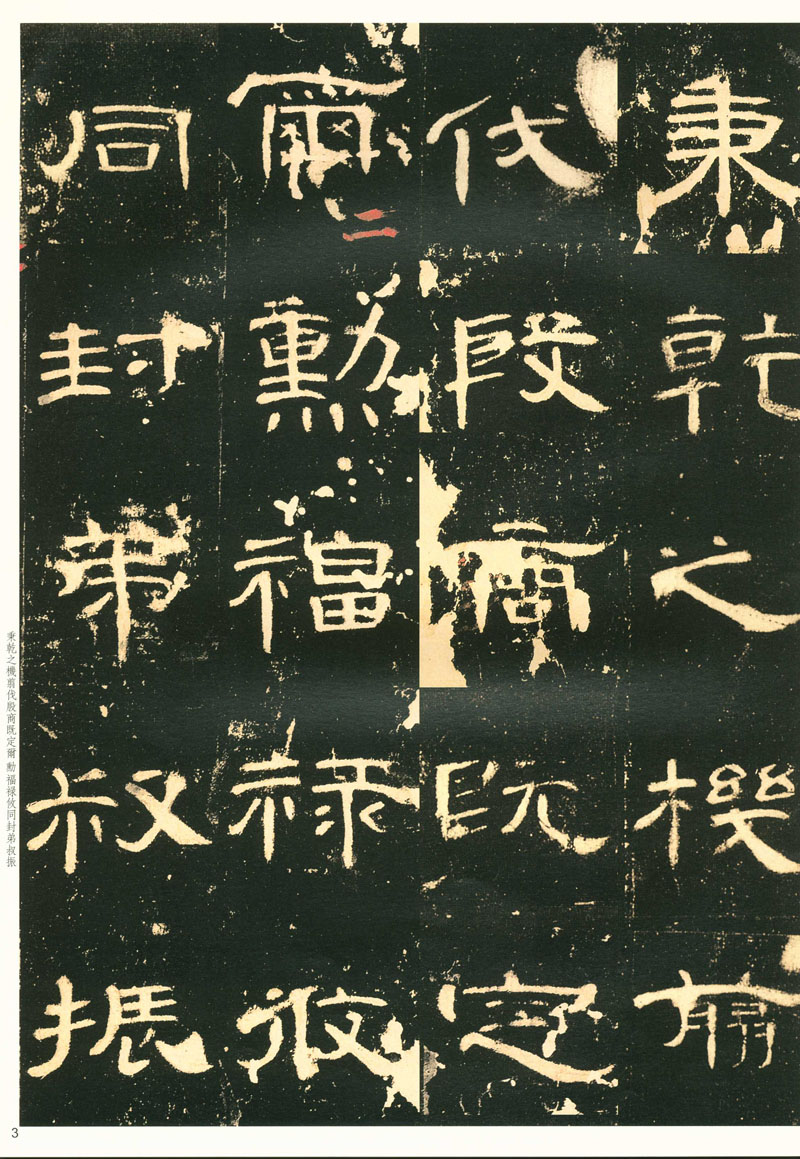 秉乾之機翦
伐殷商既定
爾勳福祿攸
同封弟叔振
秉乾之機翦伐殷商既定爾 勳福祿攸同封弟叔振
3